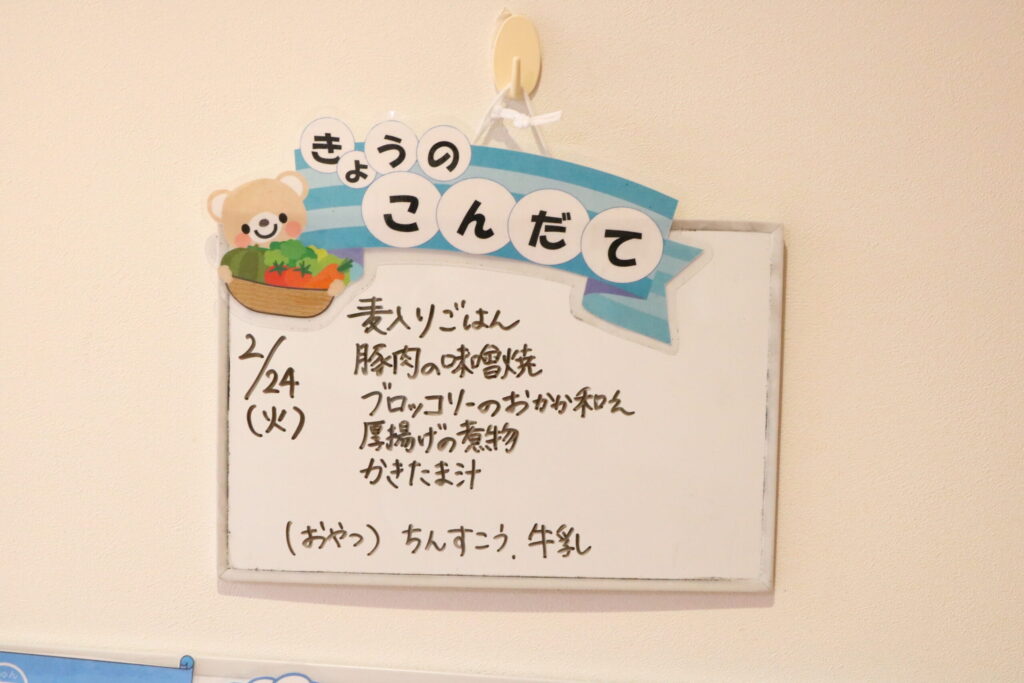 きょうの
こんだて
2/24
(火)
麦入りごはん
豚肉の味噌焼
ブロッコリーのおかか和え
厚揚げの煮物
かきたま汁
(おやつ) ちんすこう、牛乳